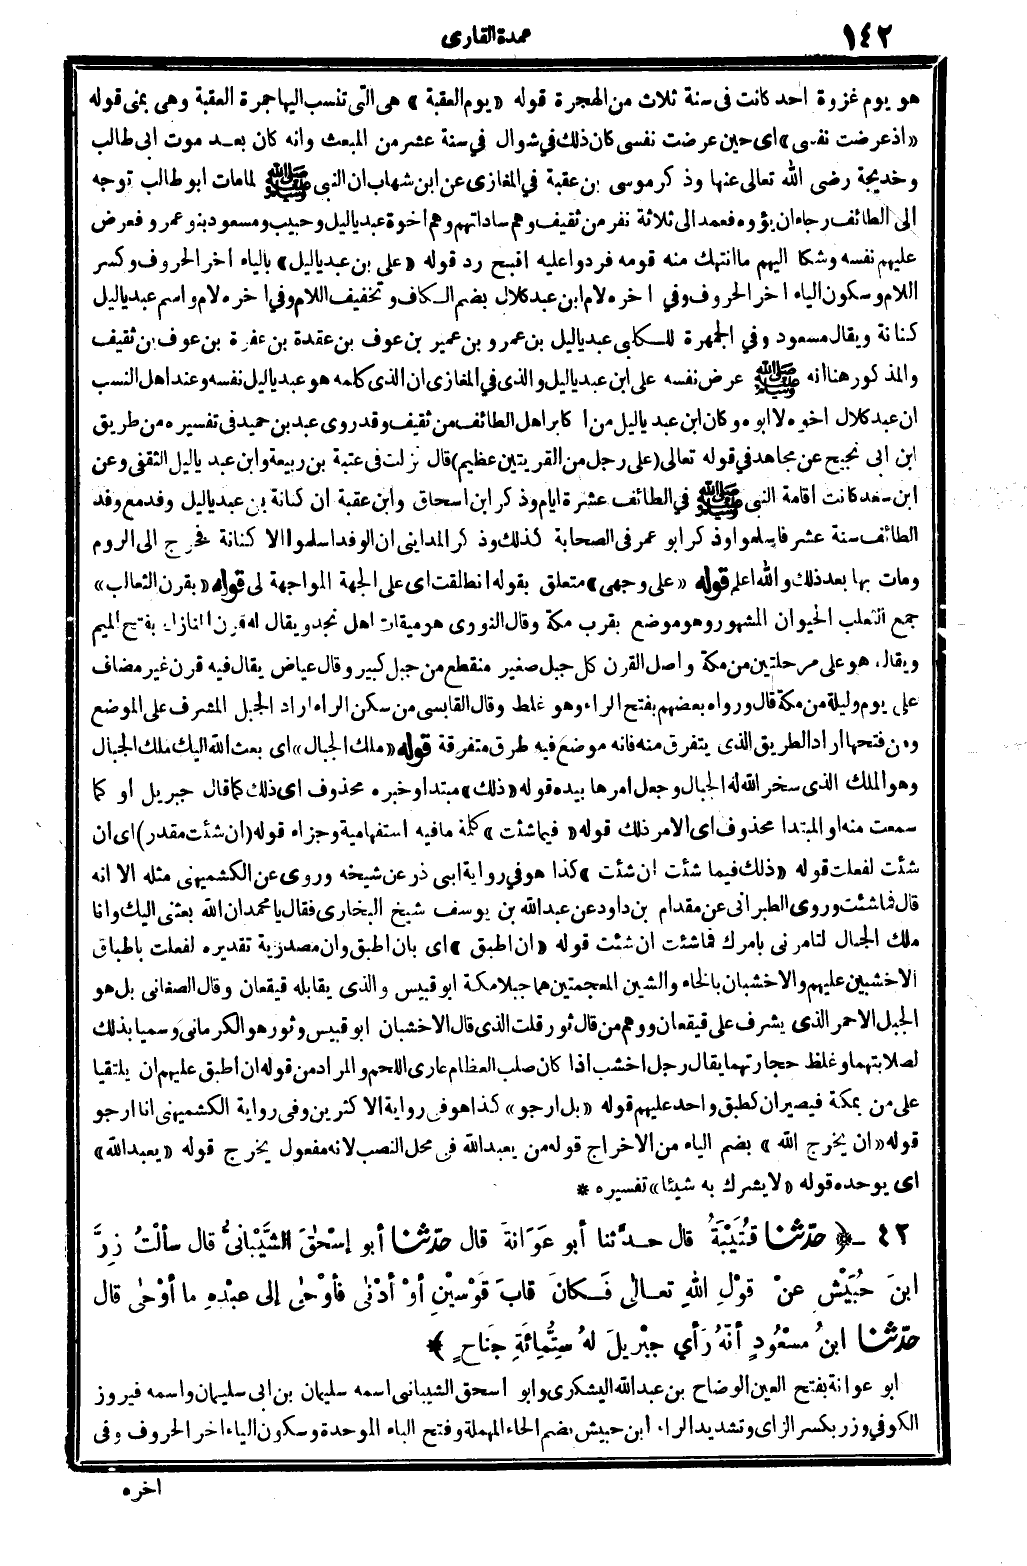 ١٤٢
عمدة القارى
هو يوم غزوة احد كانت فى سنة ثلاث من الهجرة قوله «يوم العقبة» هى التى تنسب اليها جمرة العقبة وهى بمنى قوله
«اذ عرضت نفسى» اى حين عرضت نفسى كان ذلك في شوال في سنة عشر من المبعث وانه كان بعد موت ابى طالب
وخديجة رضى الله تعالى عنها وذكر موسى بن عقبة في المغازى عن ابن شهاب ان النبى ﷺ لما مات ابو طالب توجه
الى الطائف رجاء ان يؤوه فعمد الى ثلاثة نفر من ثقيف وهم ساداتهم وهم اخوة عبد ياليل وحبيب ومسعود بنو عمرو فعرض
عليهم نفسه وشكا اليهم ما انتهك منه قومه فردوا عليه اقبح رد قوله «على بن عبد ياليل» بالياء آخر الحروف وكسر
اللام وسكون الياء آخر الحروف وفي آخره لام ابن عبد كلال بضم الكاف وتخفيف اللام وفي آخره لام واسم عبد ياليل
كنانة ويقال مسعود وفي الجمهرة للكلبى عبد ياليل بن عمرو بن عمير بن عوف بن عقدة بن عفرة بن عوف بن ثقيف
والمذكور هنا انه ﷺ عرض نفسه على ابن عبد ياليل والذى في المغازى ان الذى كلمه هو عبد ياليل نفسه وعند اهل النسب
ان عبد كلال اخوه لا ابوه وكان ابن عبد ياليل من اكابر اهل الطائف من ثقيف وقد روى عبد بن حميد فى تفسيره من طريق
ابن ابى نجيح عن مجاهد في قوله تعالى (على رجل من القريتين عظيم) قال نزلت فى عتبة بن ربيعة وابن عبد ياليل الثقفى وعن
ابن سعد كانت اقامة النبى ﷺ في الطائف عشرة ايام وذكر ابن اسحاق وابن عقبة ان كنانة بن عبد ياليل وفد مع وفد
الطائف سنة عشر فاسلموا وذكر ابو عمر فى الصحابة كذلك وذكر المداينى ان الوفد اسلموا الا كنانة فخرج الى الروم
ومات بها بعد ذلك والله اعلم قوله «على وجهى» متعلق بقوله انطلقت اى على الجهة المواجهة لى قوله «بقرن الثعالب»
جمع الثعلب الحيوان المشهور وهو موضع بقرب مكة وقال النووى هو ميقات اهل نجد ويقال له قرن المنازل بفتح الميم
ويقال هو على مرحلتين من مكة واصل القرن كل جبل صغير منقطع من جبل كبير وقال عياض يقال فيه قرن غير مضاف
على يوم وليلة من مكة قال ورواه بعضهم بفتح الراء وهو غلط وقال القابسى من سكن الراء اراد الجبل المشرف على الموضع
ومن فتحها اراد الطريق الذى يتفرق منه فانه موضع فيه طرق متفرقة قوله «ملك الجبال» اى بعث الله اليك ملك الجبال
وهو الملك الذى سخر الله له الجبال وجعل امرها بيده قوله «ذلك» مبتدا وخبره محذوف اى ذلك كما قال جبريل او كما
سمعت منه او المبتدا محذوف اى الامر ذلك قوله «فيما شئت» كلمة ما فيه استفهامية وجزاء قوله (ان شئت مقدر) اى ان
شئت لفعلت قوله «ذلك فيما شئت ان شئت» كذا هو في رواية ابى ذر عن شيخه وروى عن الكشميهنى مثله الا انه
قال فما شئت وروى الطبرانى عن مقدام بن داود عن عبدالله بن يوسف شيخ البخارى فقال يا محمد ان الله بعثنى اليك وانا
ملك الجبال لتامرنى بامرك فما شئت ان شئت قوله «ان اطبق» اى بان اطبق وان مصدرية تقديره لفعلت باطباق
الاخشبين عليهم والاخشبان بالخاء والشين المعجمتين هما جبلا مكة ابو قبيس والذى يقابله قيقعان وقال الصغانى بل هو
الجبل الاحمر الذى يشرف على قيقعان ووهم من قال ثور قلت الذى قال الاخشبان ابو قبيس وثور هو الكرمانى وسميا بذلك
لصلابتهما وغلظ حجارتهما يقال رجل اخشب اذا كان صلب العظام عارى اللحم والمراد من قوله ان اطبق عليهم ان يلتقيا
على من بمكة فيصيران كطبق واحد عليهم قوله «بل ارجو» كذا هو فى رواية الاكثرين وفى رواية الكشميهنى انا ارجو
قوله «ان يخرج الله» بضم الياء من الاخراج قوله من يعبد الله فى محل النصب لانه مفعول يخرج قوله «يعبد الله»
اى يوحده قوله «لا يشرك به شيئا» تفسيره *
٤٢ - ﴿ حدّثنا قُتَيْبَةُ قال حدّثنا أبو عَوَانةَ قال حدّثنا أبو إسْحٰقَ الشَّيْبانىُّ قال سألْتُ زِرَّ
ابنَ حُبَيْشٍ عنْ قوْلِ اللهِ تعالىٰ فَكانَ قابَ قَوْسَيْنِ أوْ أدْنٰى فأوْحٰى إلى عبْدِهِ ما أوْحٰى قال
حدّثنا ابنُ مسْعُودٍ أنّهُ رَأي جبْريلَ لهُ سِتُّمِائَةِ جَناحٍ ﴾
ابو عوانة بفتح العين الوضاح بن عبد الله اليشكرى وابو اسحق الشيبانى اسمه سليمان بن ابى سليمان واسمه فيروز
الكوفي وزر بكسر الزاى وتشديد الراء ابن حبيش بضم الحاء المهملة وفتح الباء الموحدة وسكون الياء آخر الحروف وفى
اخره